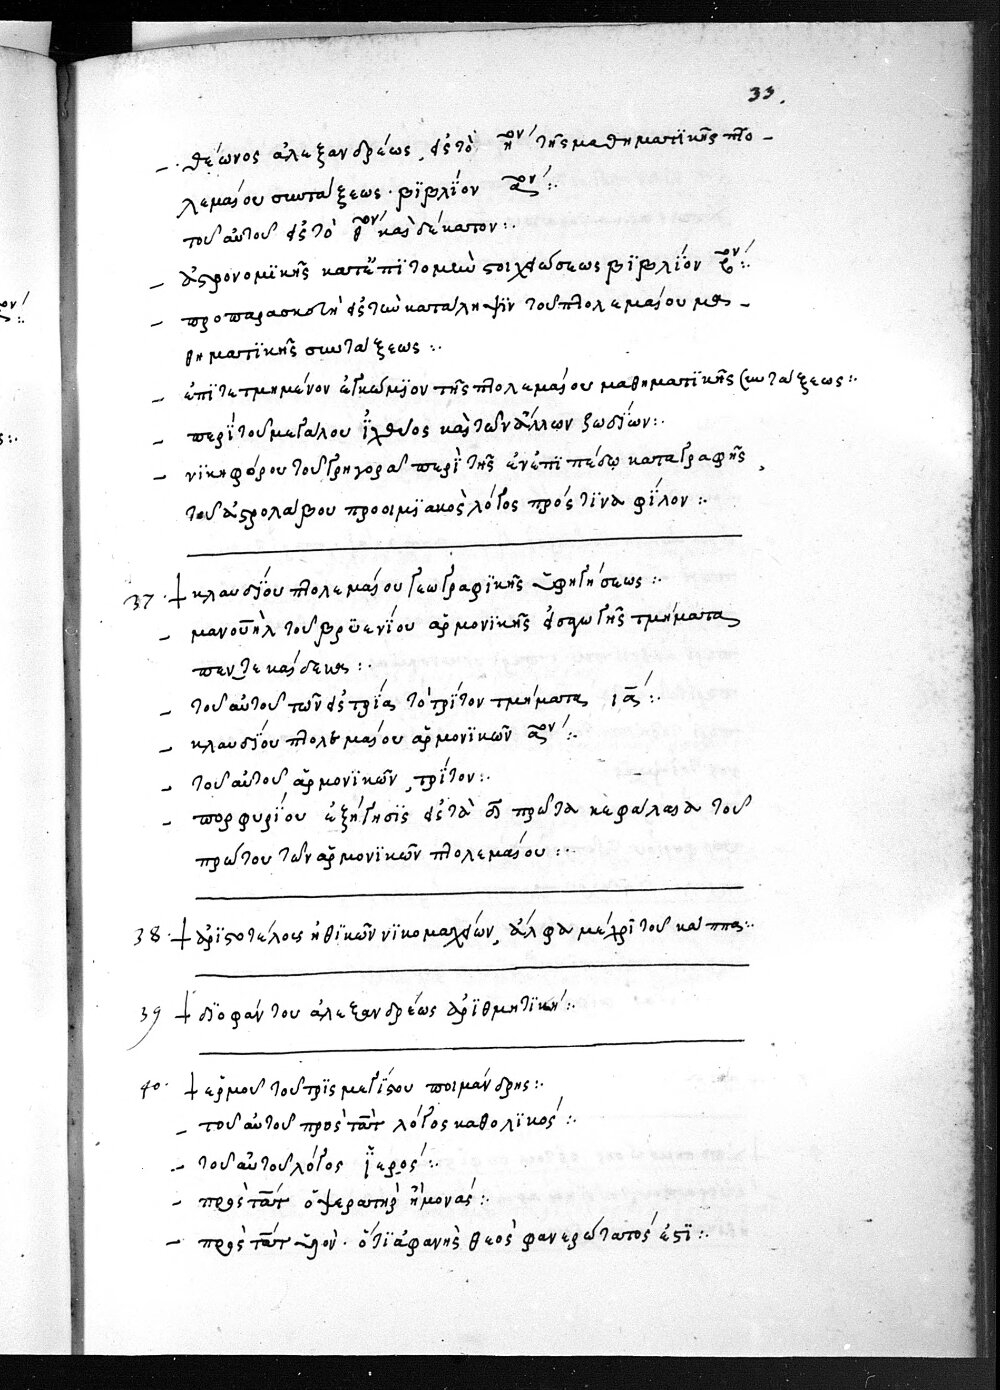 33.
– θέωνος ἀλεξανδρέως, εἰς τὸ η^ον τῆς μαθηματϊκῆς πτο –
λεμαίου συντάξεως · βϊβλΐον α^ον :.
τοῦ αὐτοῦ εἰς τὸ καὶ δέκατον :.
– ἀςρονομϊκῆς κατ' ἐπϊτομὴν ςοιχειώσεως βϊβλΐον β^ον :.
– προπαρασκευὴ εἰς τὴν κατάληψϊν τοῦ πτολεμαίου μα –
θηματϊκῆς συντάξεως :.
– ἐπϊτετμημένον ἐγκώμϊον τῆς πτολεμαίου μαθηματϊκῆς συντάξεως :.
– περῒ τοῦ μεγάλου ϊχθύος καὶ τῶν ἄλλων ζωδΐων :.
– νϊκηφόρου τοῦ γρηγορᾶ περῒ τῆς ἐν ἐπϊπέδῳ καταγραφῆς,
τοῦ ἀςρολάβου προοιμϊακὸς λόγος πρός τϊνα φΐλον :.
37 · † κλαυδΐου πτολεμαίου γεωγραφϊκῆς ὑφηγήσεως :.
– μανουὴλ τοῦ βρϋενΐου ἁρμονϊκῆς εἰσαγωγῆς τμήματα
πεντεκαίδεκα :.
– τοῦ αὐτοῦ τῶν εἰς τρΐα τὸ τρΐτον τμήματα ια :.
– κλαυδΐου πτολεμαίου ἁρμονϊκῶν α^ον :.
– τοῦ αὐτοῦ ἁρμονϊκῶν, τρΐτον :.
– πορφυρΐου ἐξήγησϊς εἰς τὰ δ πρῶτα κεφάλαια τοῦ
πρώτου τῶν ἁρμονϊκῶν πτολεμαίου :.
38 · † ἀρϊςοτέλους ἠθϊκῶν νϊκομαχείων, ἄλφα μέχρϊ τοῦ κάππα :.
39 † δϊοφάντου ἀλεξανδρέως ἀρϊθμητϊκή :.
40 · † ἑρμοῦ τοῦ τρϊς μεγΐςου ποιμάνδρης :.
– τοῦ αὐτοῦ πρὸς τὰτ λόγος καθολϊκός :.
– τοῦ αὐτοῦ λόγος ϊερός :.
– πρὸς τὰτ ὁ κρατὴρ ἢ μονάς :.
– πρὸς τὰτ υἱὸν · ὅτϊ ἀφανὴς θεὸς φανερώτατός ἐςϊ :.